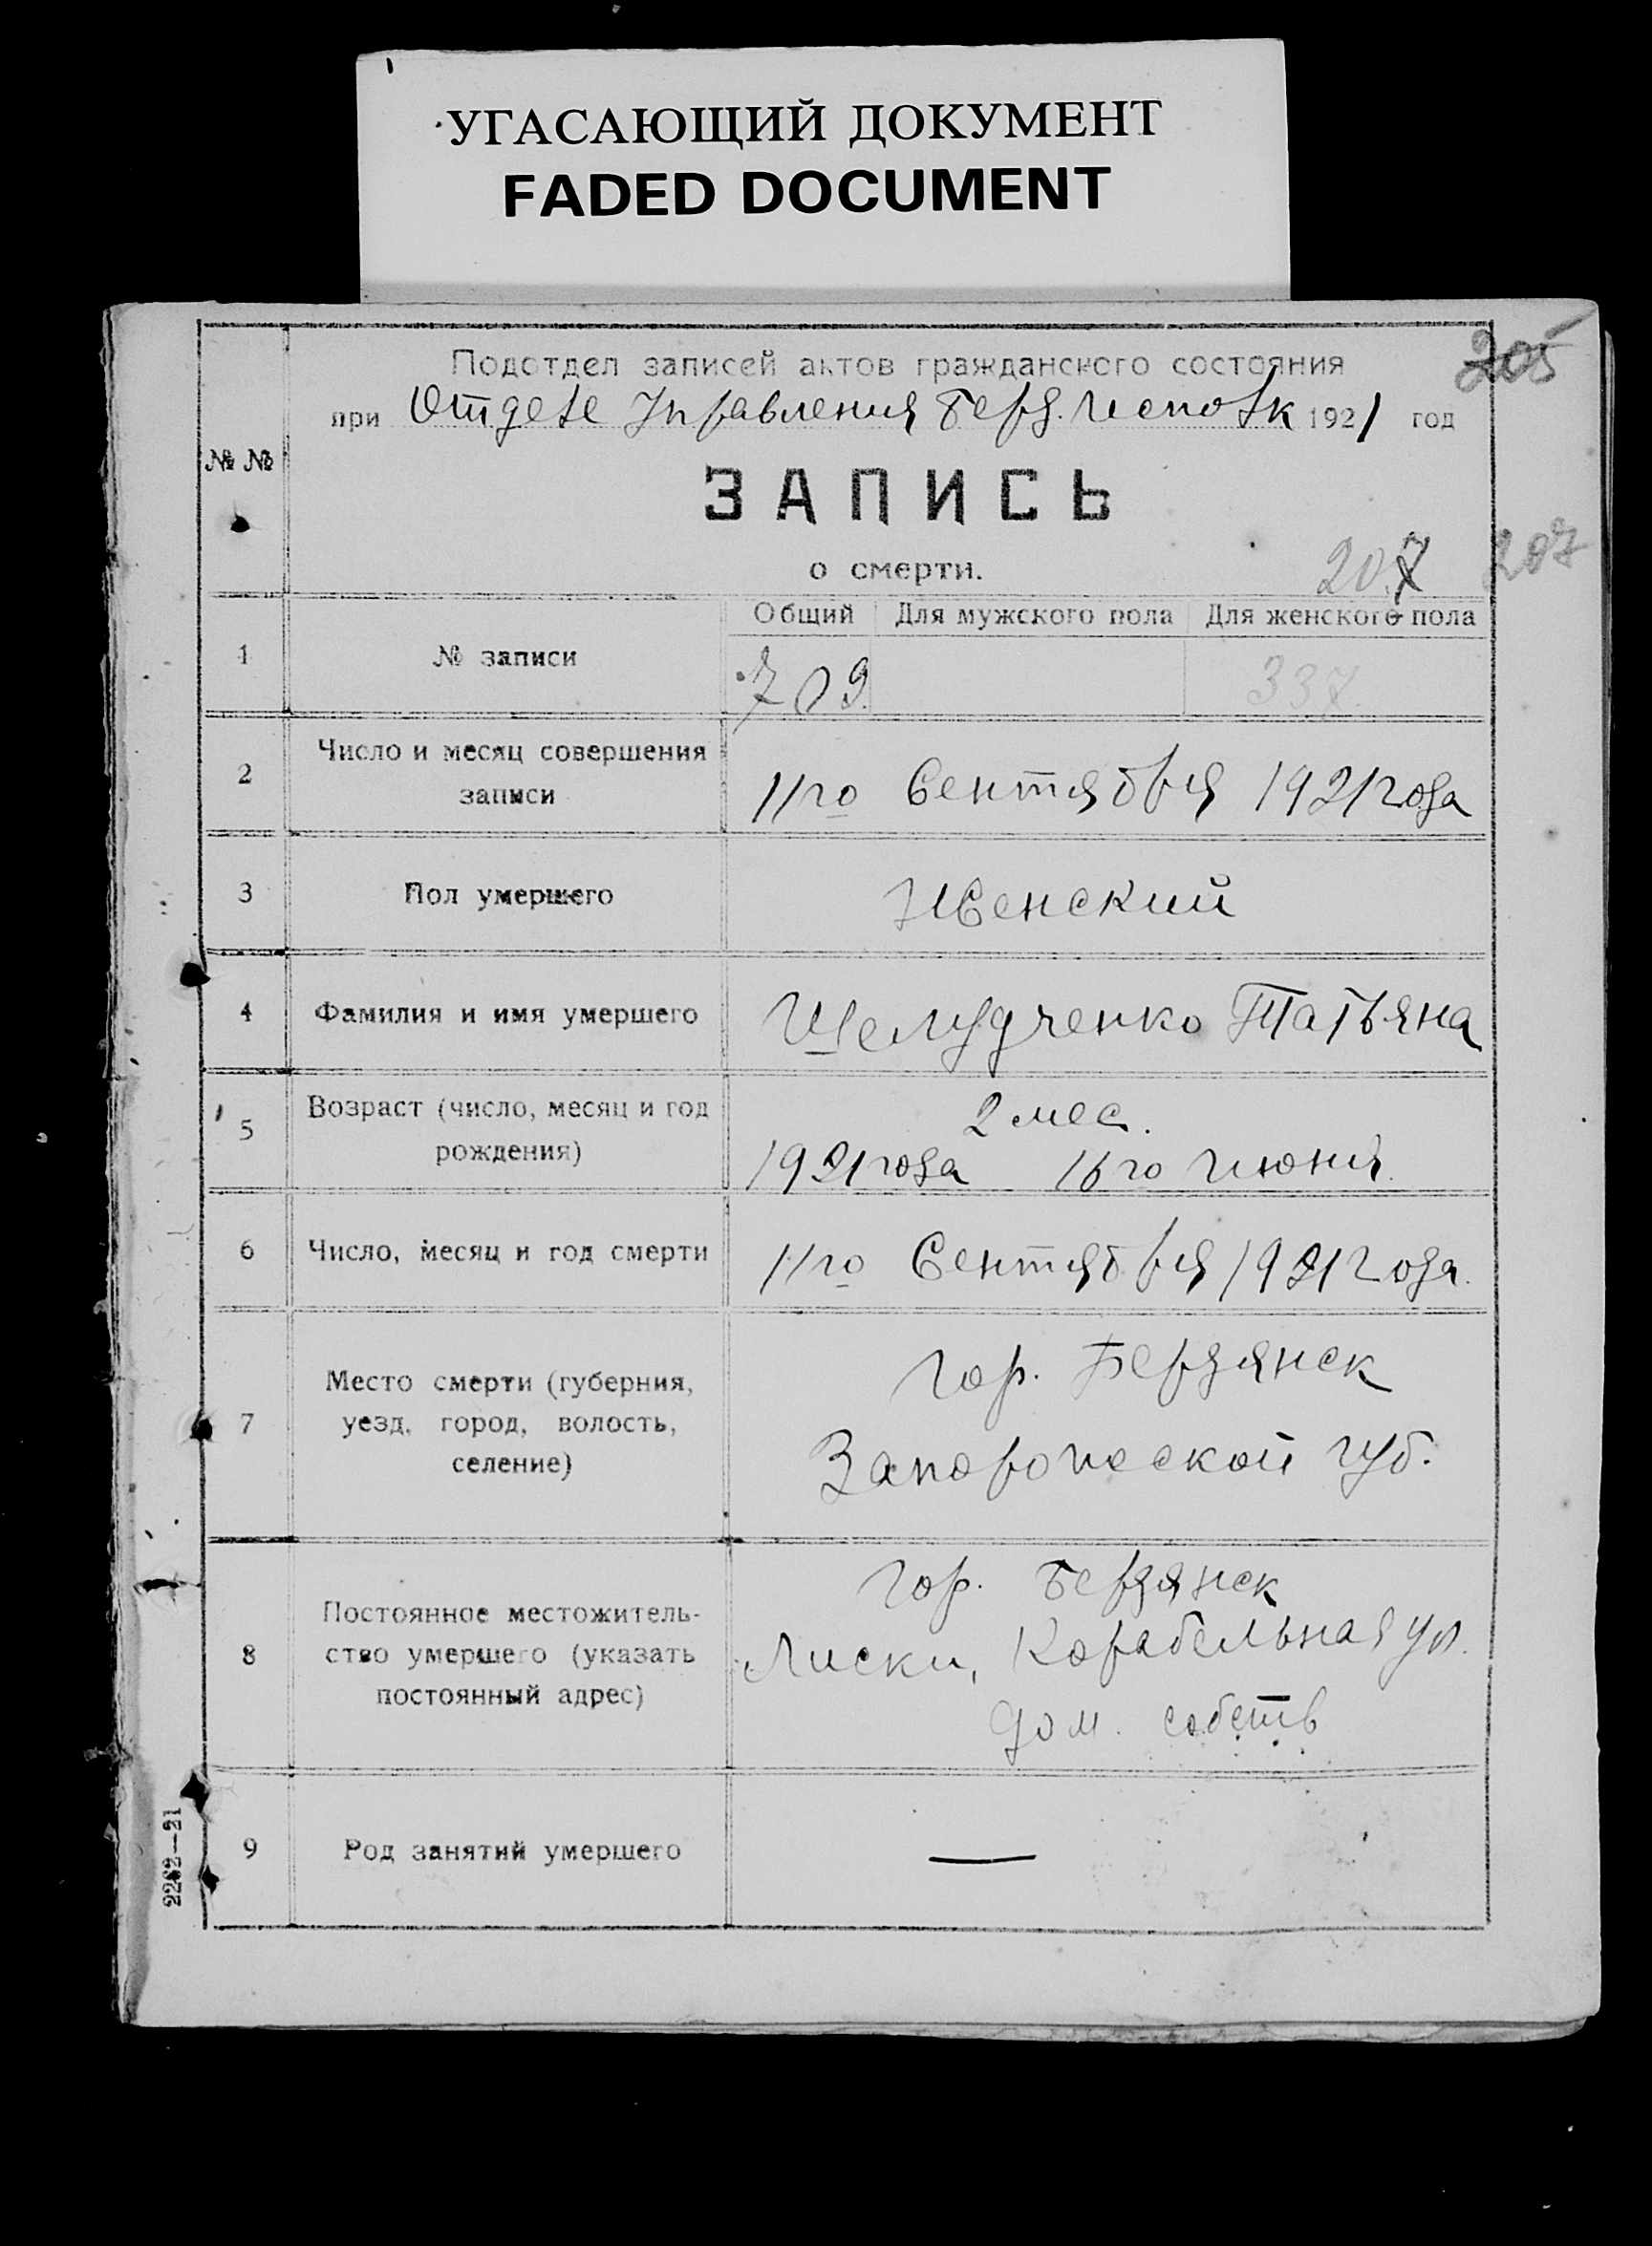 УГАСАЮЩИЙ ДОКУМЕНТ
FADED DOCUMENT
205
Подотдел записей актов гражданского состояния
при Отделе Управления Берд. Исполк 1921 год
№ №
ЗАПИСЬ
о смерти.
207 207
Общий Для мужского пола Для женского пола
1 № записи 709. 337.
2 Число и месяц совершения
записи
11го Сентября 1921 года
3 Пол умершего Женский
4 Фамилия и имя умершего Шелудченко Татьяна
5 Возраст (число, месяц и год
рождения)
2 мес.
1921 года 16го Июня.
6 Число, месяц и год смерти 11го Сентября 1921 года.
7 Место смерти (губерния,
уезд, город, волость,
селение)
Гор. Бердянск
Запорожской губ.
8 Постоянное местожитель-
ство умершего (указать
постоянный адрес)
Гор. Бердянск
Лиски, Корабельная ул.
дом. собств
9 Род занятий умершего —
2262—21